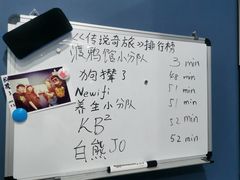 《传说奇旅》排行榜
渡鸦馆小分队 3 min
狗攆了 48 min
Newifi 51 min
养生小分队 51 min
KB² 52 min
白熊JO 52 min